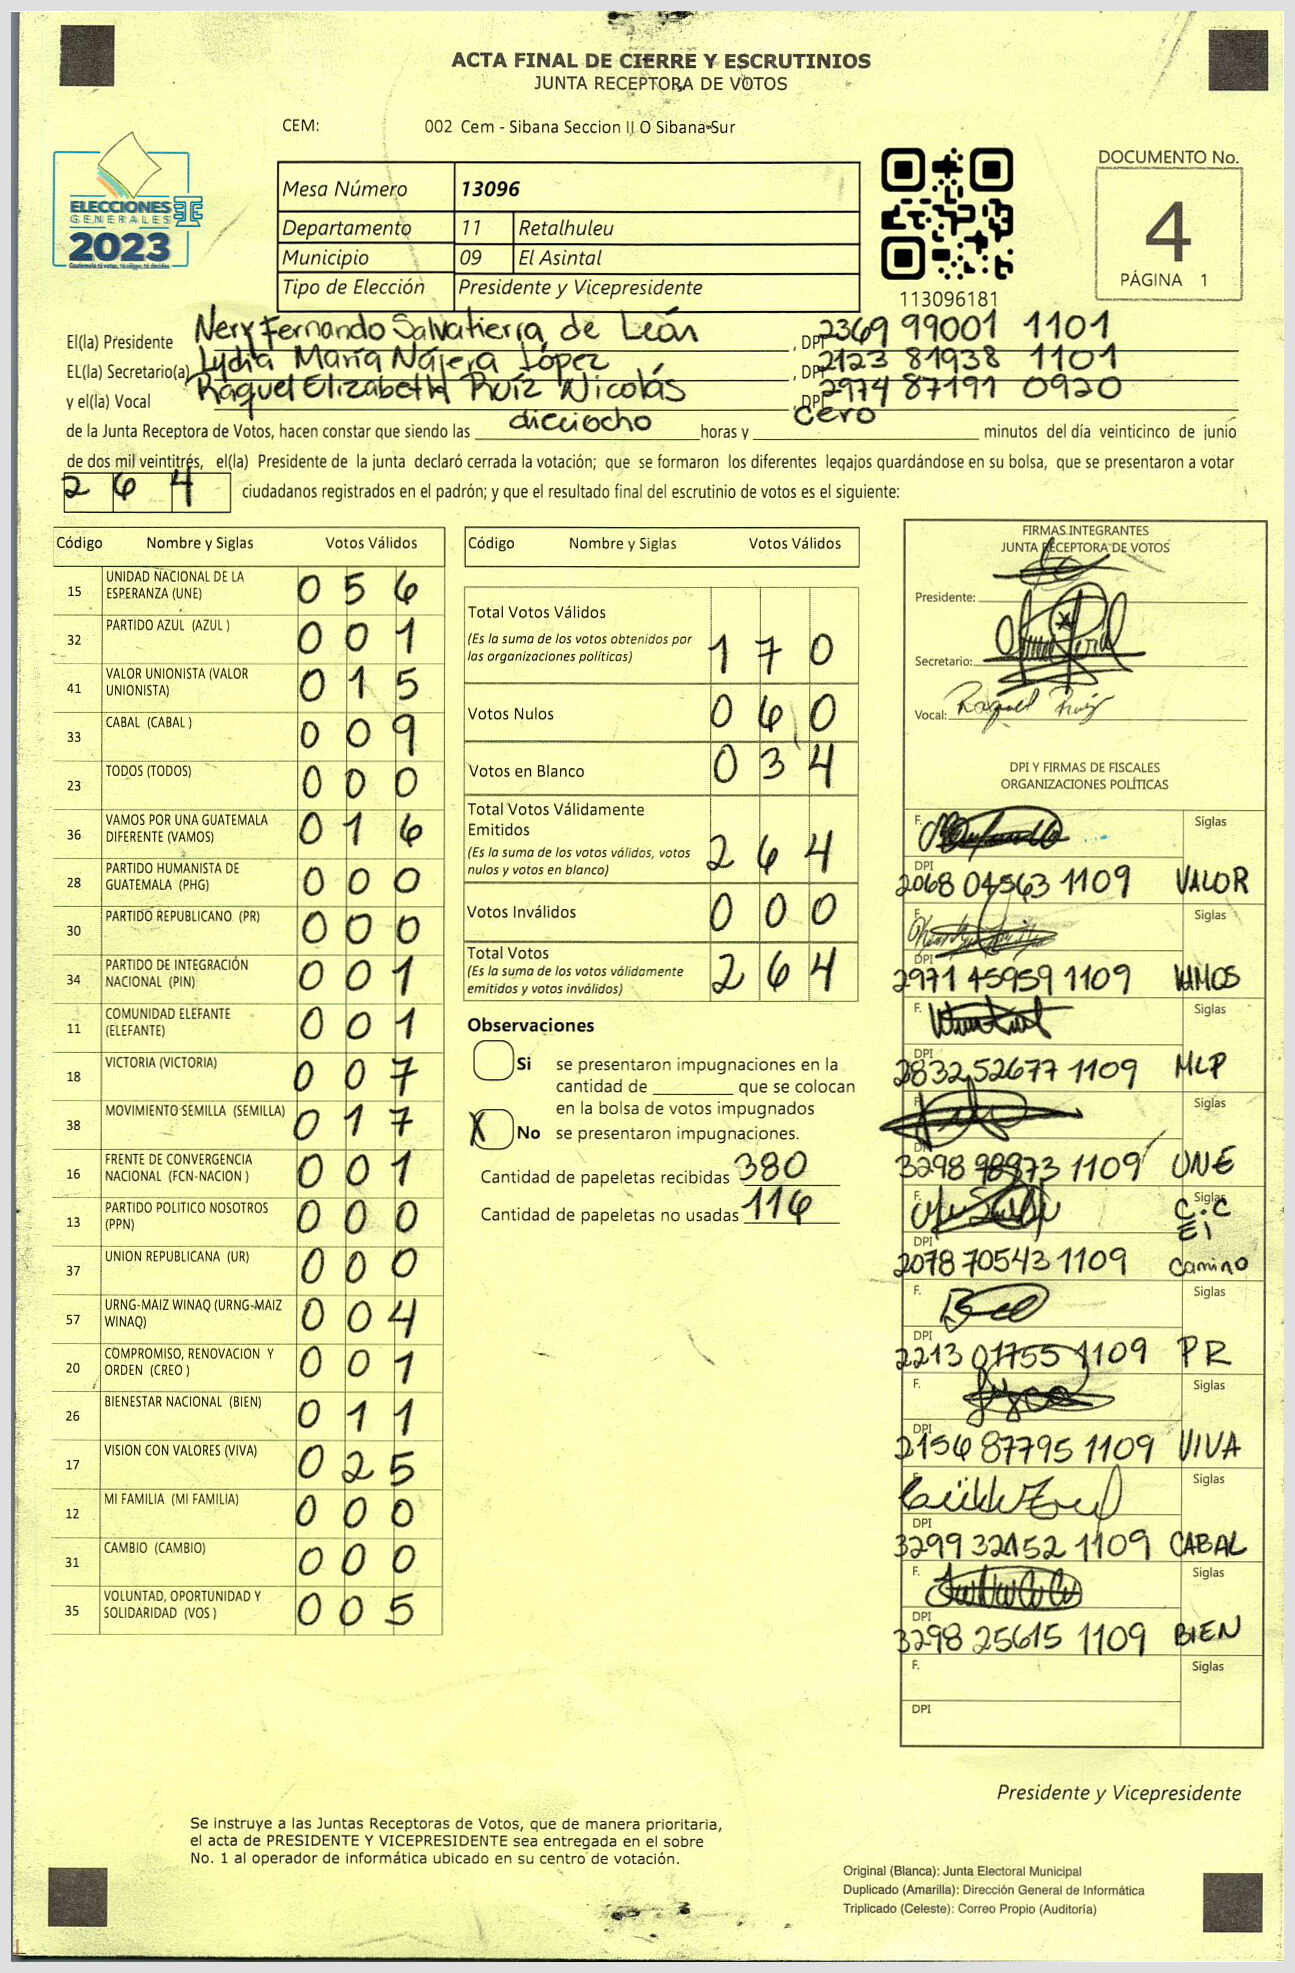 ACTA FINAL DE CIERRE Y ESCRUTINIOS
JUNTA RECEPTORA DE VOTOS
CEM: 002 Cem - Sibana Seccion II O Sibana Sur
ELECCIONES
GENERALES
2023
Guatemala tú votas, tú eliges, tú decides
Mesa Número 13096
Departamento 11 Retalhuleu
Municipio 09 El Asintal
Tipo de Elección Presidente y Vicepresidente
113096181
DOCUMENTO No.
4
PÁGINA 1
El(la) Presidente Nery Fernando Salvatierra de León, DPI 2369 99001 1101
EL(la) Secretario(a) Lydia María Nájera López, DPI 2123 81938 1101
y el(la) Vocal Raquel Elizabeth Ruíz Nicolás DPI 2974 87191 0920
de la Junta Receptora de Votos, hacen constar que siendo las dieciocho horas y cero minutos del día veinticinco de junio
de dos mil veintitrés, el(la) Presidente de la junta declaró cerrada la votación; que se formaron los diferentes legajos guardándose en su bolsa, que se presentaron a votar
264 ciudadanos registrados en el padrón; y que el resultado final del escrutinio de votos es el siguiente:
Código Nombre y Siglas Votos Válidos
15 UNIDAD NACIONAL DE LA ESPERANZA (UNE) 056
32 PARTIDO AZUL (AZUL ) 001
41 VALOR UNIONISTA (VALOR UNIONISTA) 015
33 CABAL (CABAL ) 009
23 TODOS (TODOS) 000
36 VAMOS POR UNA GUATEMALA DIFERENTE (VAMOS) 016
28 PARTIDO HUMANISTA DE GUATEMALA (PHG) 000
30 PARTIDO REPUBLICANO (PR) 000
34 PARTIDO DE INTEGRACIÓN NACIONAL (PIN) 001
11 COMUNIDAD ELEFANTE (ELEFANTE) 001
18 VICTORIA (VICTORIA) 007
38 MOVIMIENTO SEMILLA (SEMILLA) 017
16 FRENTE DE CONVERGENCIA NACIONAL (FCN-NACION ) 001
13 PARTIDO POLITICO NOSOTROS (PPN) 000
37 UNION REPUBLICANA (UR) 000
57 URNG-MAIZ WINAQ (URNG-MAIZ WINAQ) 004
20 COMPROMISO, RENOVACION Y ORDEN (CREO ) 001
26 BIENESTAR NACIONAL (BIEN) 011
17 VISION CON VALORES (VIVA) 025
12 MI FAMILIA (MI FAMILIA) 000
31 CAMBIO (CAMBIO) 000
35 VOLUNTAD, OPORTUNIDAD Y SOLIDARIDAD (VOS ) 005
Código Nombre y Siglas Votos Válidos
Total Votos Válidos
(Es la suma de los votos obtenidos por las organizaciones políticas) 170
Votos Nulos 060
Votos en Blanco 034
Total Votos Válidamente Emitidos
(Es la suma de los votos válidos, votos nulos y votos en blanco) 264
Votos Inválidos 000
Total Votos
(Es la suma de los votos válidamente emitidos y votos inválidos) 264
Observaciones
Si se presentaron impugnaciones en la
cantidad de ________ que se colocan
en la bolsa de votos impugnados
X No se presentaron impugnaciones.
Cantidad de papeletas recibidas 380
Cantidad de papeletas no usadas 116
FIRMAS INTEGRANTES
JUNTA RECEPTORA DE VOTOS
Presidente:
Secretario:
Vocal: Raquel Ruíz
DPI Y FIRMAS DE FISCALES
ORGANIZACIONES POLÍTICAS
F. Siglas
DPI 2068 04563 1109 VALOR
F. Siglas
DPI 2971 45959 1109 VAMOS
F. Siglas
DPI 2832 52677 1109 MLP
F. Siglas
DPI 3298 98973 1109 UNE
F. Siglas
DPI 2078 70543 1109 C.C El Camino
F. Siglas
DPI 2213 01755 1109 PR
F. Siglas
DPI 2156 87795 1109 VIVA
F. Siglas
DPI 3299 32152 1109 CABAL
F. Siglas
DPI 3298 25615 1109 BIEN
F. Siglas
DPI
Presidente y Vicepresidente
Se instruye a las Juntas Receptoras de Votos, que de manera prioritaria,
el acta de PRESIDENTE Y VICEPRESIDENTE sea entregada en el sobre
No. 1 al operador de informática ubicado en su centro de votación.
Original (Blanca): Junta Electoral Municipal
Duplicado (Amarilla): Dirección General de Informática
Triplicado (Celeste): Correo Propio (Auditoría)